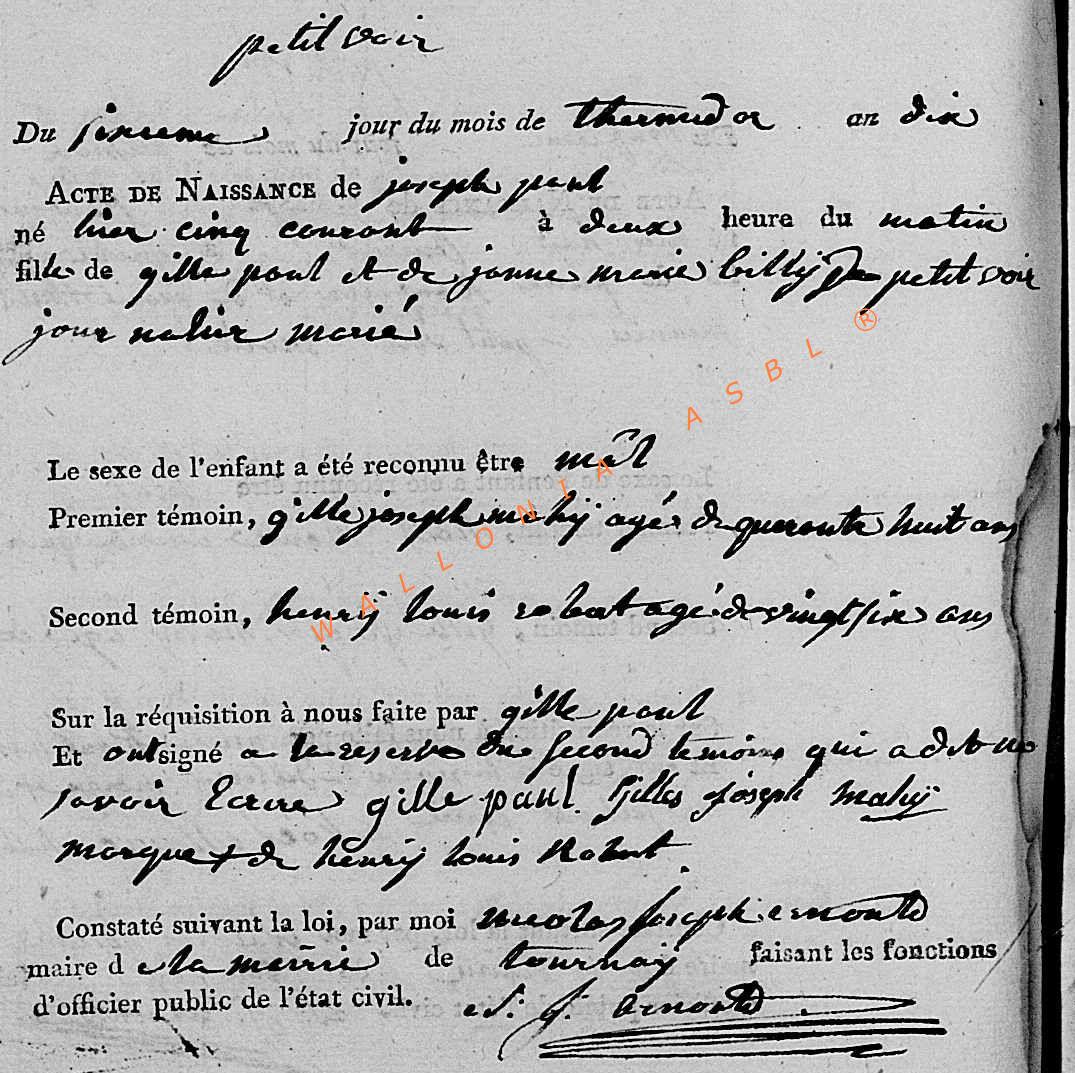 petit voir
Du sixieme jour du mois de thermidor an dix
ACTE DE NAISSANCE de joseph paul
né hier cinq couront à deux heure du matin
fille de gille paul et de janne marie billy de petit voir
jour nalier marié
Le sexe de l'enfant a été reconnu être mâl
Premier témoin, gille joseph mahij agér de queronte huit ans
Second témoin, henrij louis robert agé de vingt six ans
Sur la réquisition à nous faite par gille paul
Et ont signé a la reserve du second temoins qui a dit ne
savoir Ecrire gille paul Gilles joseph mahij
marque + de henrij louis Robert
Constaté suivant la loi, par moi nicolas joseph arnould
maire d e la mairie de tournay faisant les fonctions
d'officier public de l'état civil. N. J. arnould
WALLONIA ASBL ®